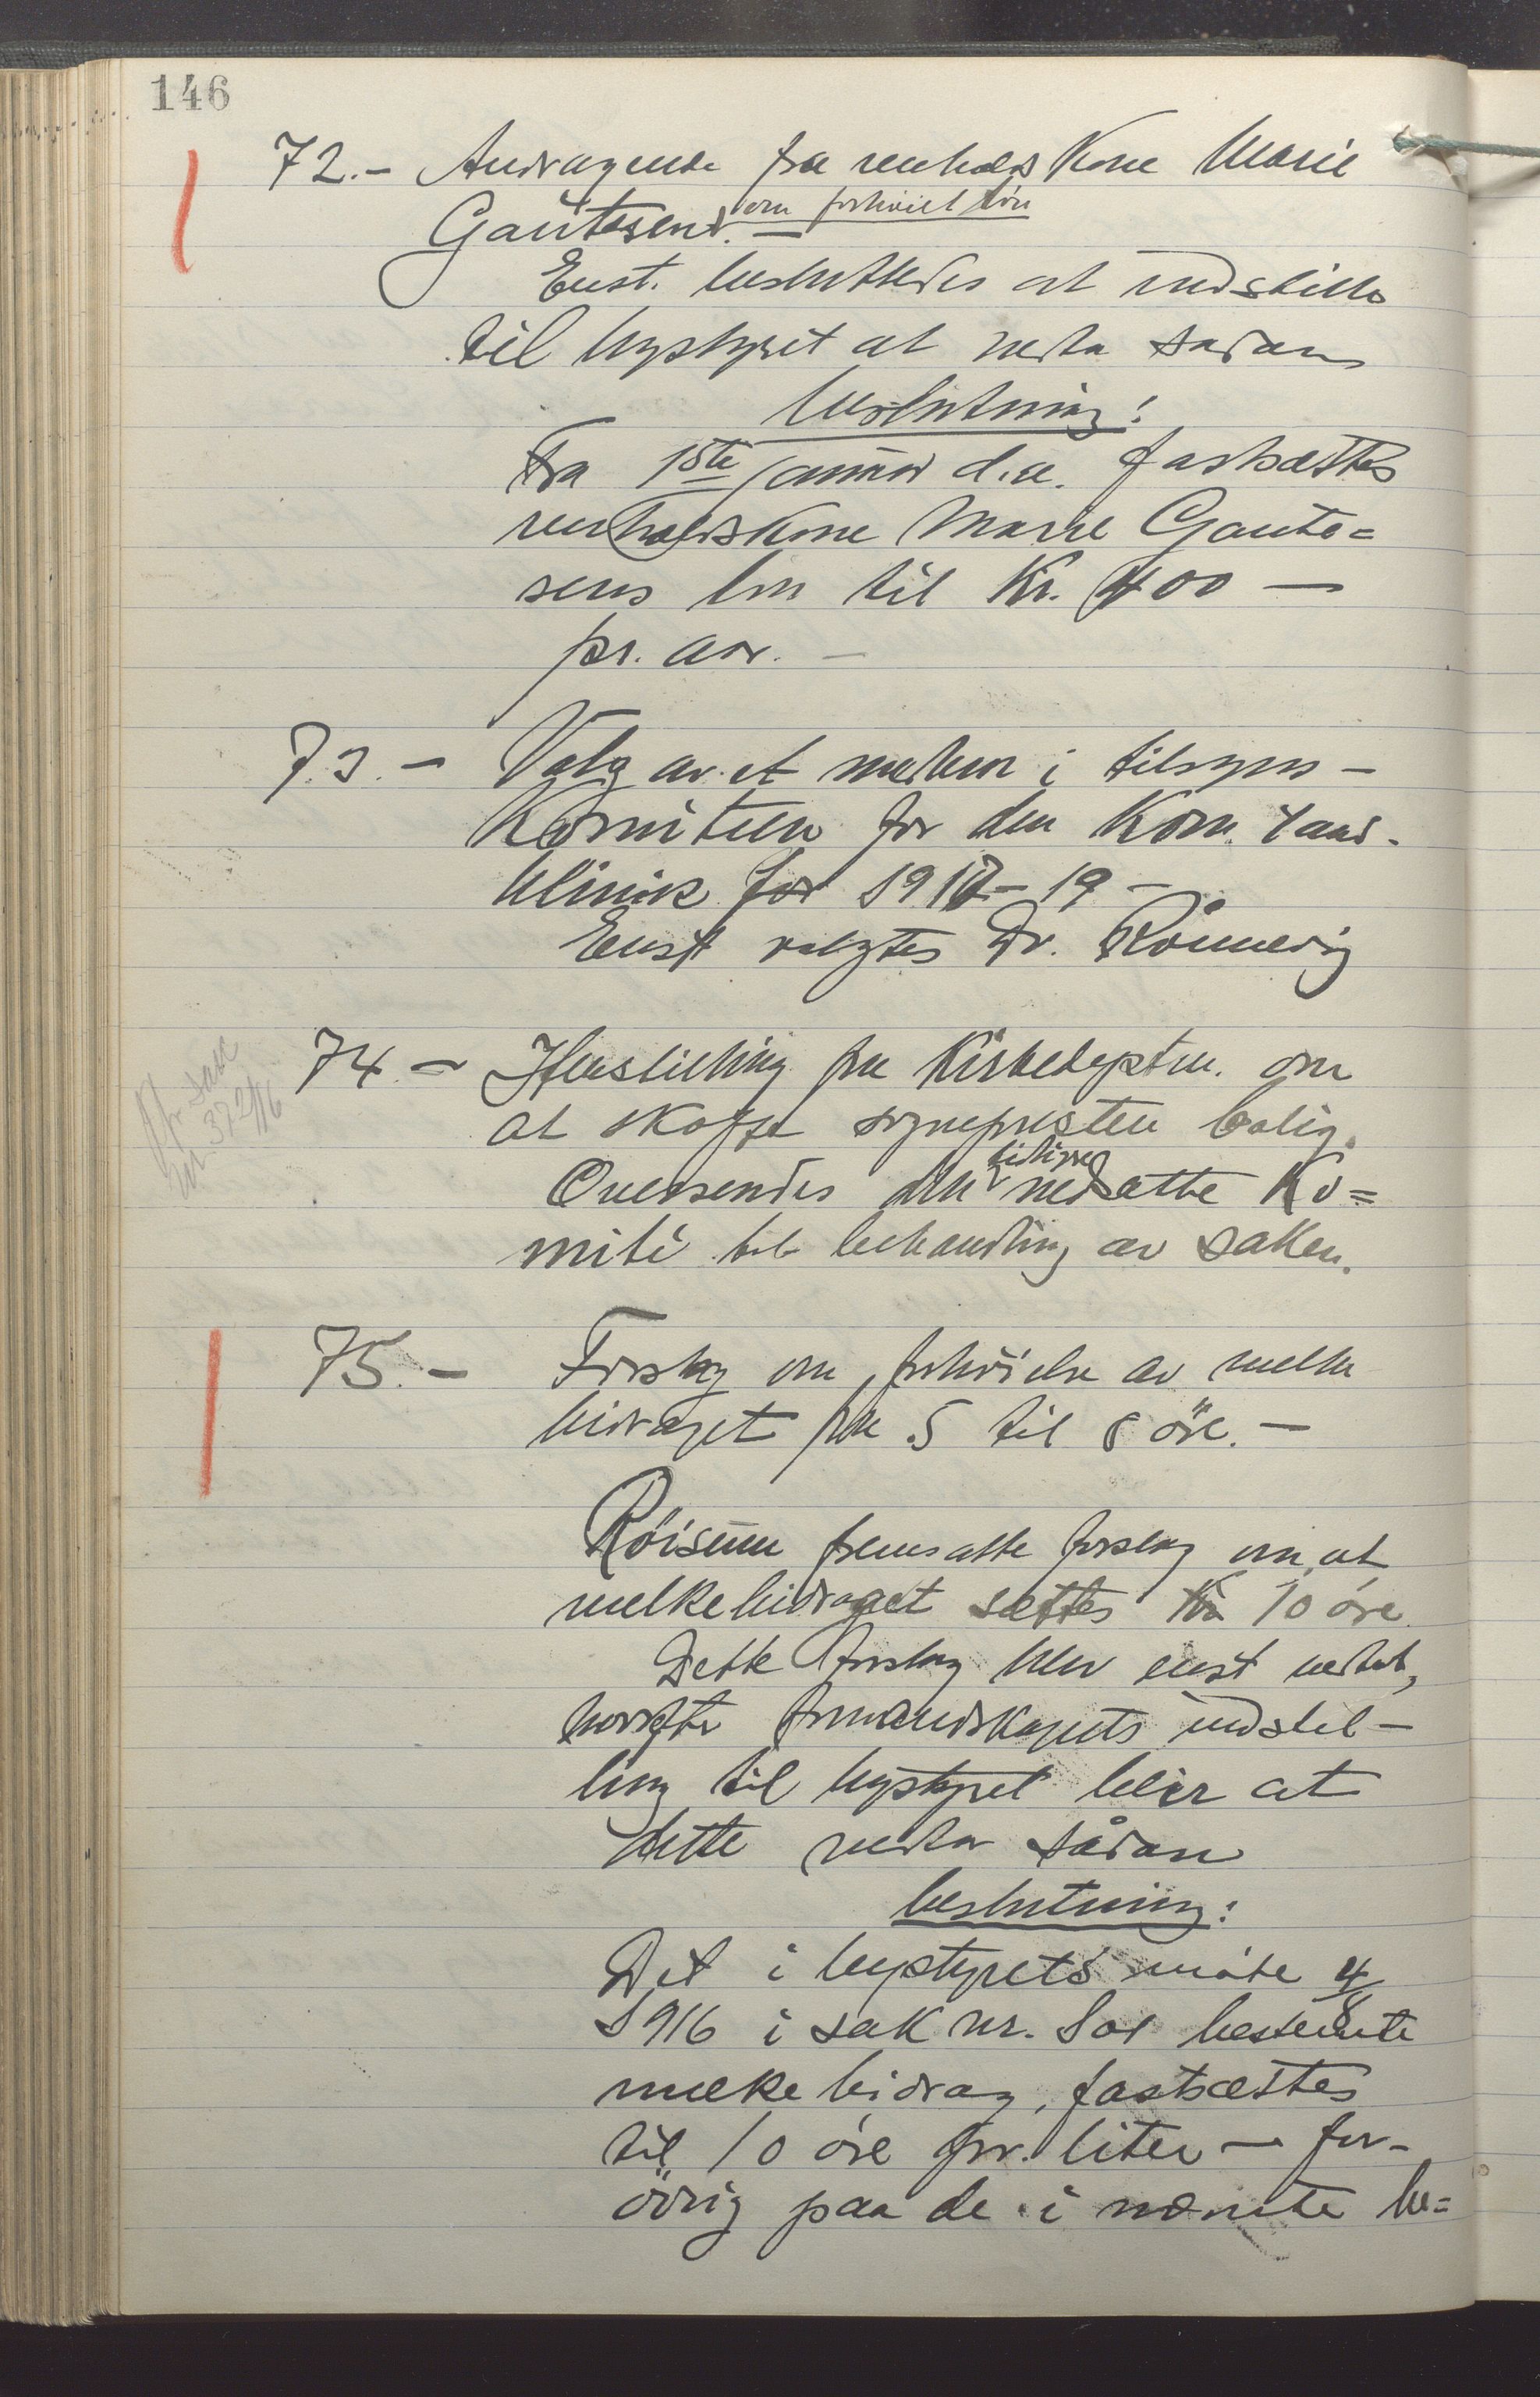 146
72.- Andragende fra renholdskone Marie
Gautesen om forhøiet løn
Enst. besluttedes at indstille
til bystyret at vedta sådan
beslutning:
Fra 1ste januar d.a. fastsættes
renholdskone Marie Gaute=
sens løn til Kr. 400 —
pr. aar. —
73.- Valg av et medlem i tilsyns-
komiteen for den kom. tand-
klinik for 1917-19 -
Enst valgtes Dr. Rönnevig
74.- Henstilling fra Kirkedeptm. om
at skaffe sogneprsten bolig.
Oversendes den tidligere nedsatte Ko=
mité til behandling av saken.
Jfr sak
nr. 372/16
75.- Forslag om forhöielse av melke
bidraget fra 5 til 8 öre. -
Röisum fremsatte forslag om at
melkebidraget sættes til 10 öre
Dette forslag blev enst vedtat,
hvorefter formandskapets indstil-
ling til bystyret blir at
dette vedtar sådan
beslutning:
Det i bystyrets möte 4/8
1916 i sak nr. 801 bestemte
melkebidrag, fastsættes
til 10 öre pr. liter — for-
övrig paa de i nævnte be=